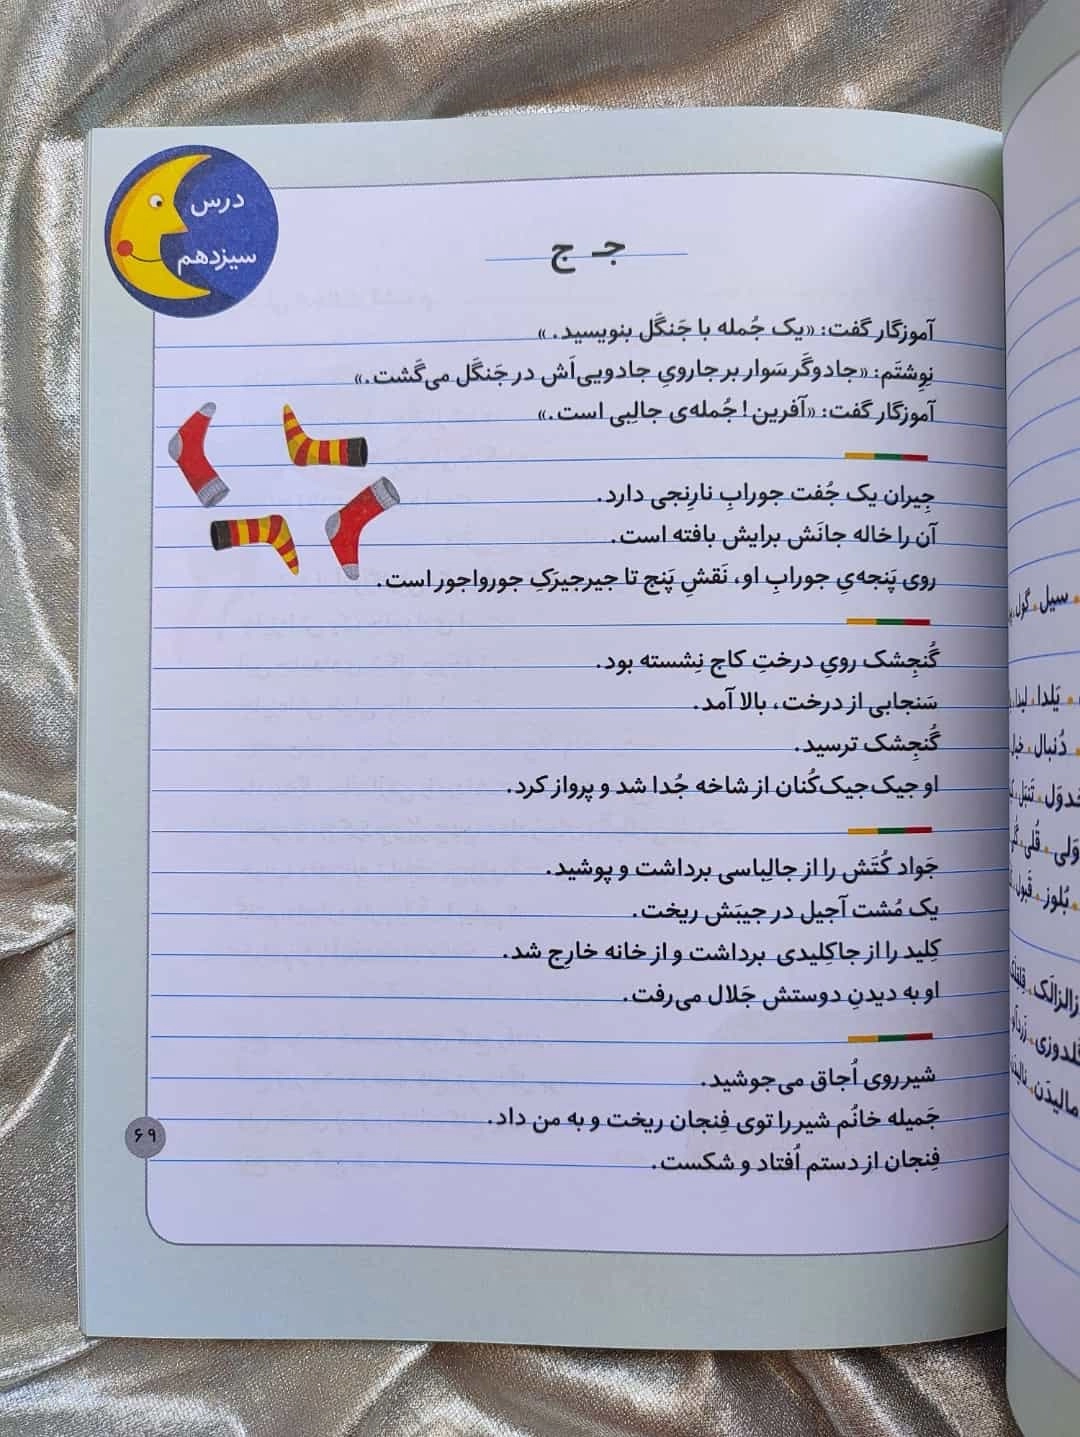 درس
سیزدهم
جـ ج
آموزگار گفت: «یک جُمله با جَنگَل بنویسید.»
نِوِشتَم: «جادوگَر سَوار بر جارویِ جادویی‌اَش در جَنگَل می‌گَشت.»
آموزگار گفت: «آفرین! جُمله‌ی جالِبی است.»
جِیران یک جُفت جورابِ نارِنجی دارد.
آن را خاله جانَش برایش بافته است.
روی پَنجه‌یِ جورابِ او، نَقشِ پَنج تا جیرجیرَکِ جورواجور است.
گُنجِشک رویِ درختِ کاج نِشسته بود.
سَنجابی از درخت، بالا آمد.
گُنجِشک ترسید.
او جیک‌جیک‌کُنان از شاخه جُدا شد و پرواز کرد.
جَواد کُتَش را از جالِباسی برداشت و پوشید.
یک مُشت آجیل در جیبَش ریخت.
کِلید را از جاکِلیدی برداشت و از خانه خارِج شد.
او به دیدنِ دوستش جَلال می‌رفت.
شیر روی اُجاق می‌جوشید.
جَمیله خانُم شیر را توی فِنجان ریخت و به من داد.
فِنجان از دستم اُفتاد و شکست.
۶۹
سیل . گول
یَلدا . لیدا
دُنبال
جَدوَل . تَنبَل
وَلی . قُلی
بُلوز . قَبول
زالزالَک
گُلدوزی
مالیدَن